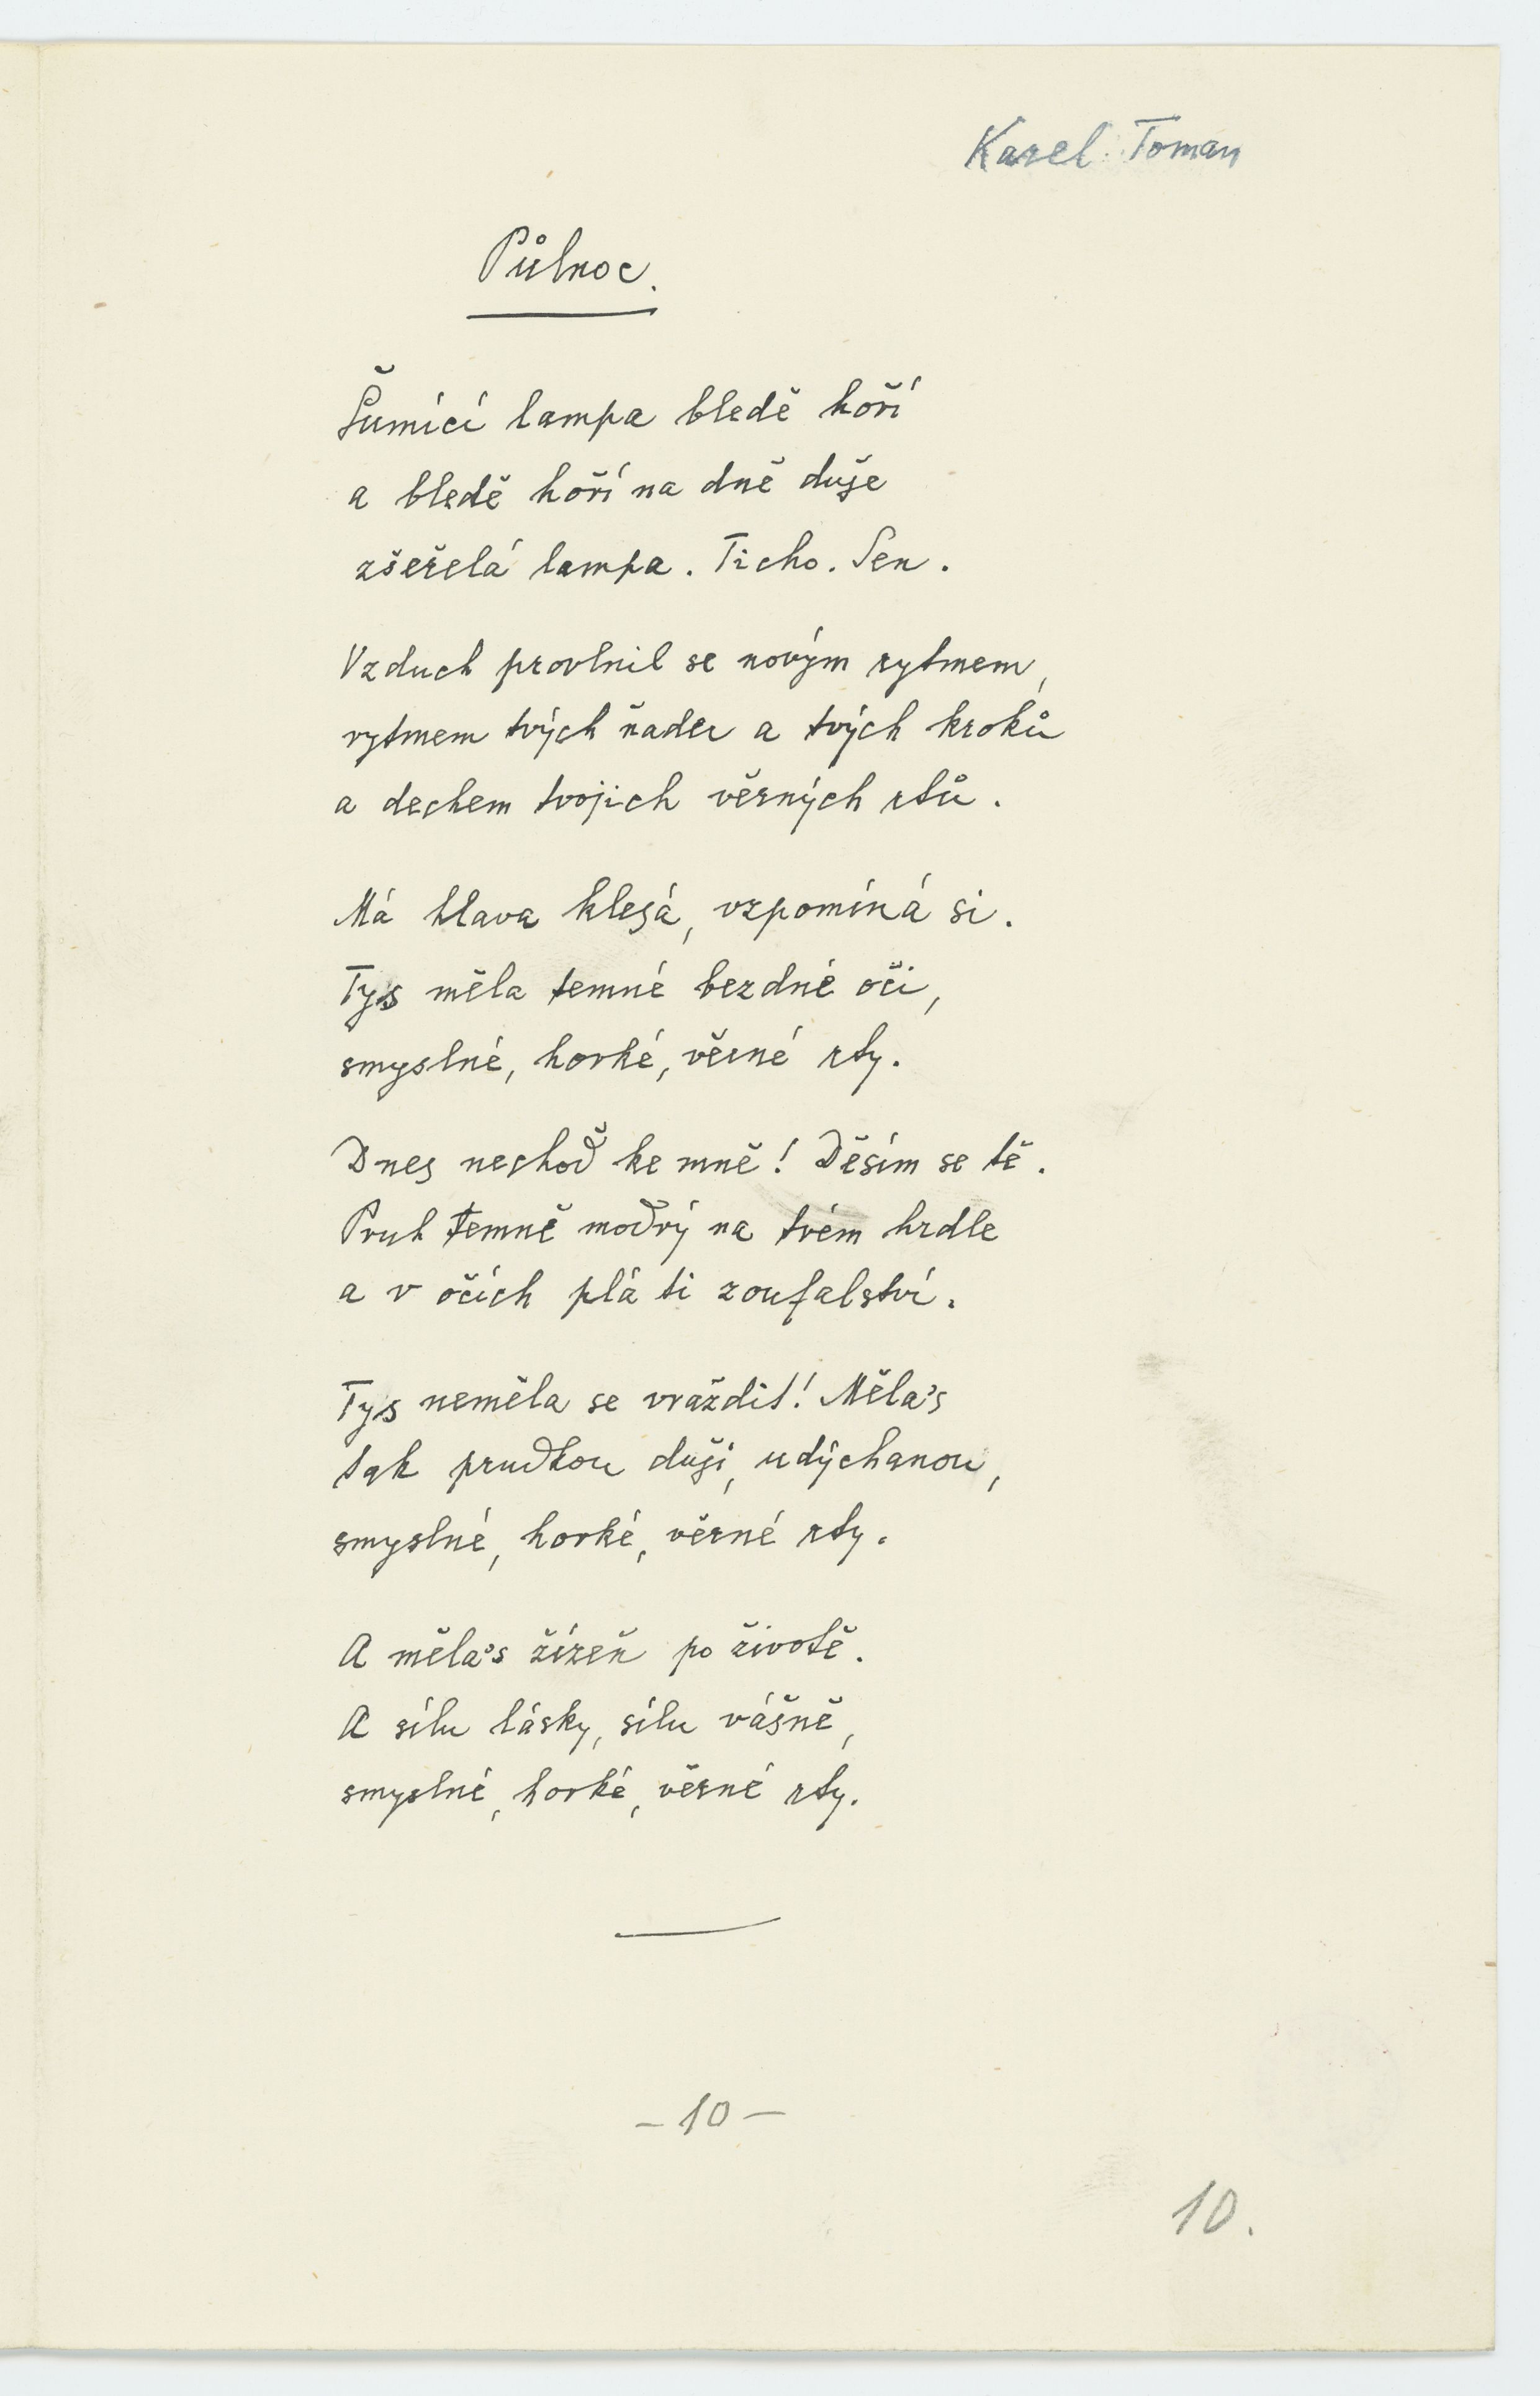 Karel Toman
Půlnoc.
Šumící lampa bledě hoří
a bledě hoří na dně duše
zšeřelá lampa. Ticho. Sen.
Vzduch provlnil se novým rytmem,
rytmem tvých ňader a tvých kroků
a dechem tvojich věrných rtů.
Má hlava klesá, vzpomíná si.
Tys měla temné bezdné oči,
smyslné, horké, věrné rty.
Dnes nechoď ke mně! Děsím se tě.
Pruh temně modrý na tvém hrdle
a v očích plá ti zoufalství.
Tys neměla se vraždit! Měla's
tak prudkou duši, udýchanou,
smyslné, horké, věrné rty.
A měla's žízeň po životě.
A sílu lásky, sílu vášně,
smyslné, horké, věrné rty.
– 10 –
10.